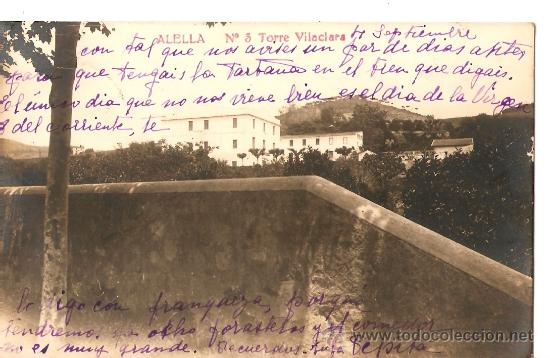 ALELLA Nº 3 Torre Vilaclara
4 Septiembre
con tal que nos avises un par de dias antes
para que tengais la tartana en el tren que digais.
el único dia que no nos viene bien es el dia de la Virgen
8 del corriente, te
lo digo con franqueza, porque
tendremos ya ocho forasteros y el comedor
no es muy grande. Recuerdos. tuya Pepita
todocoleccion.net